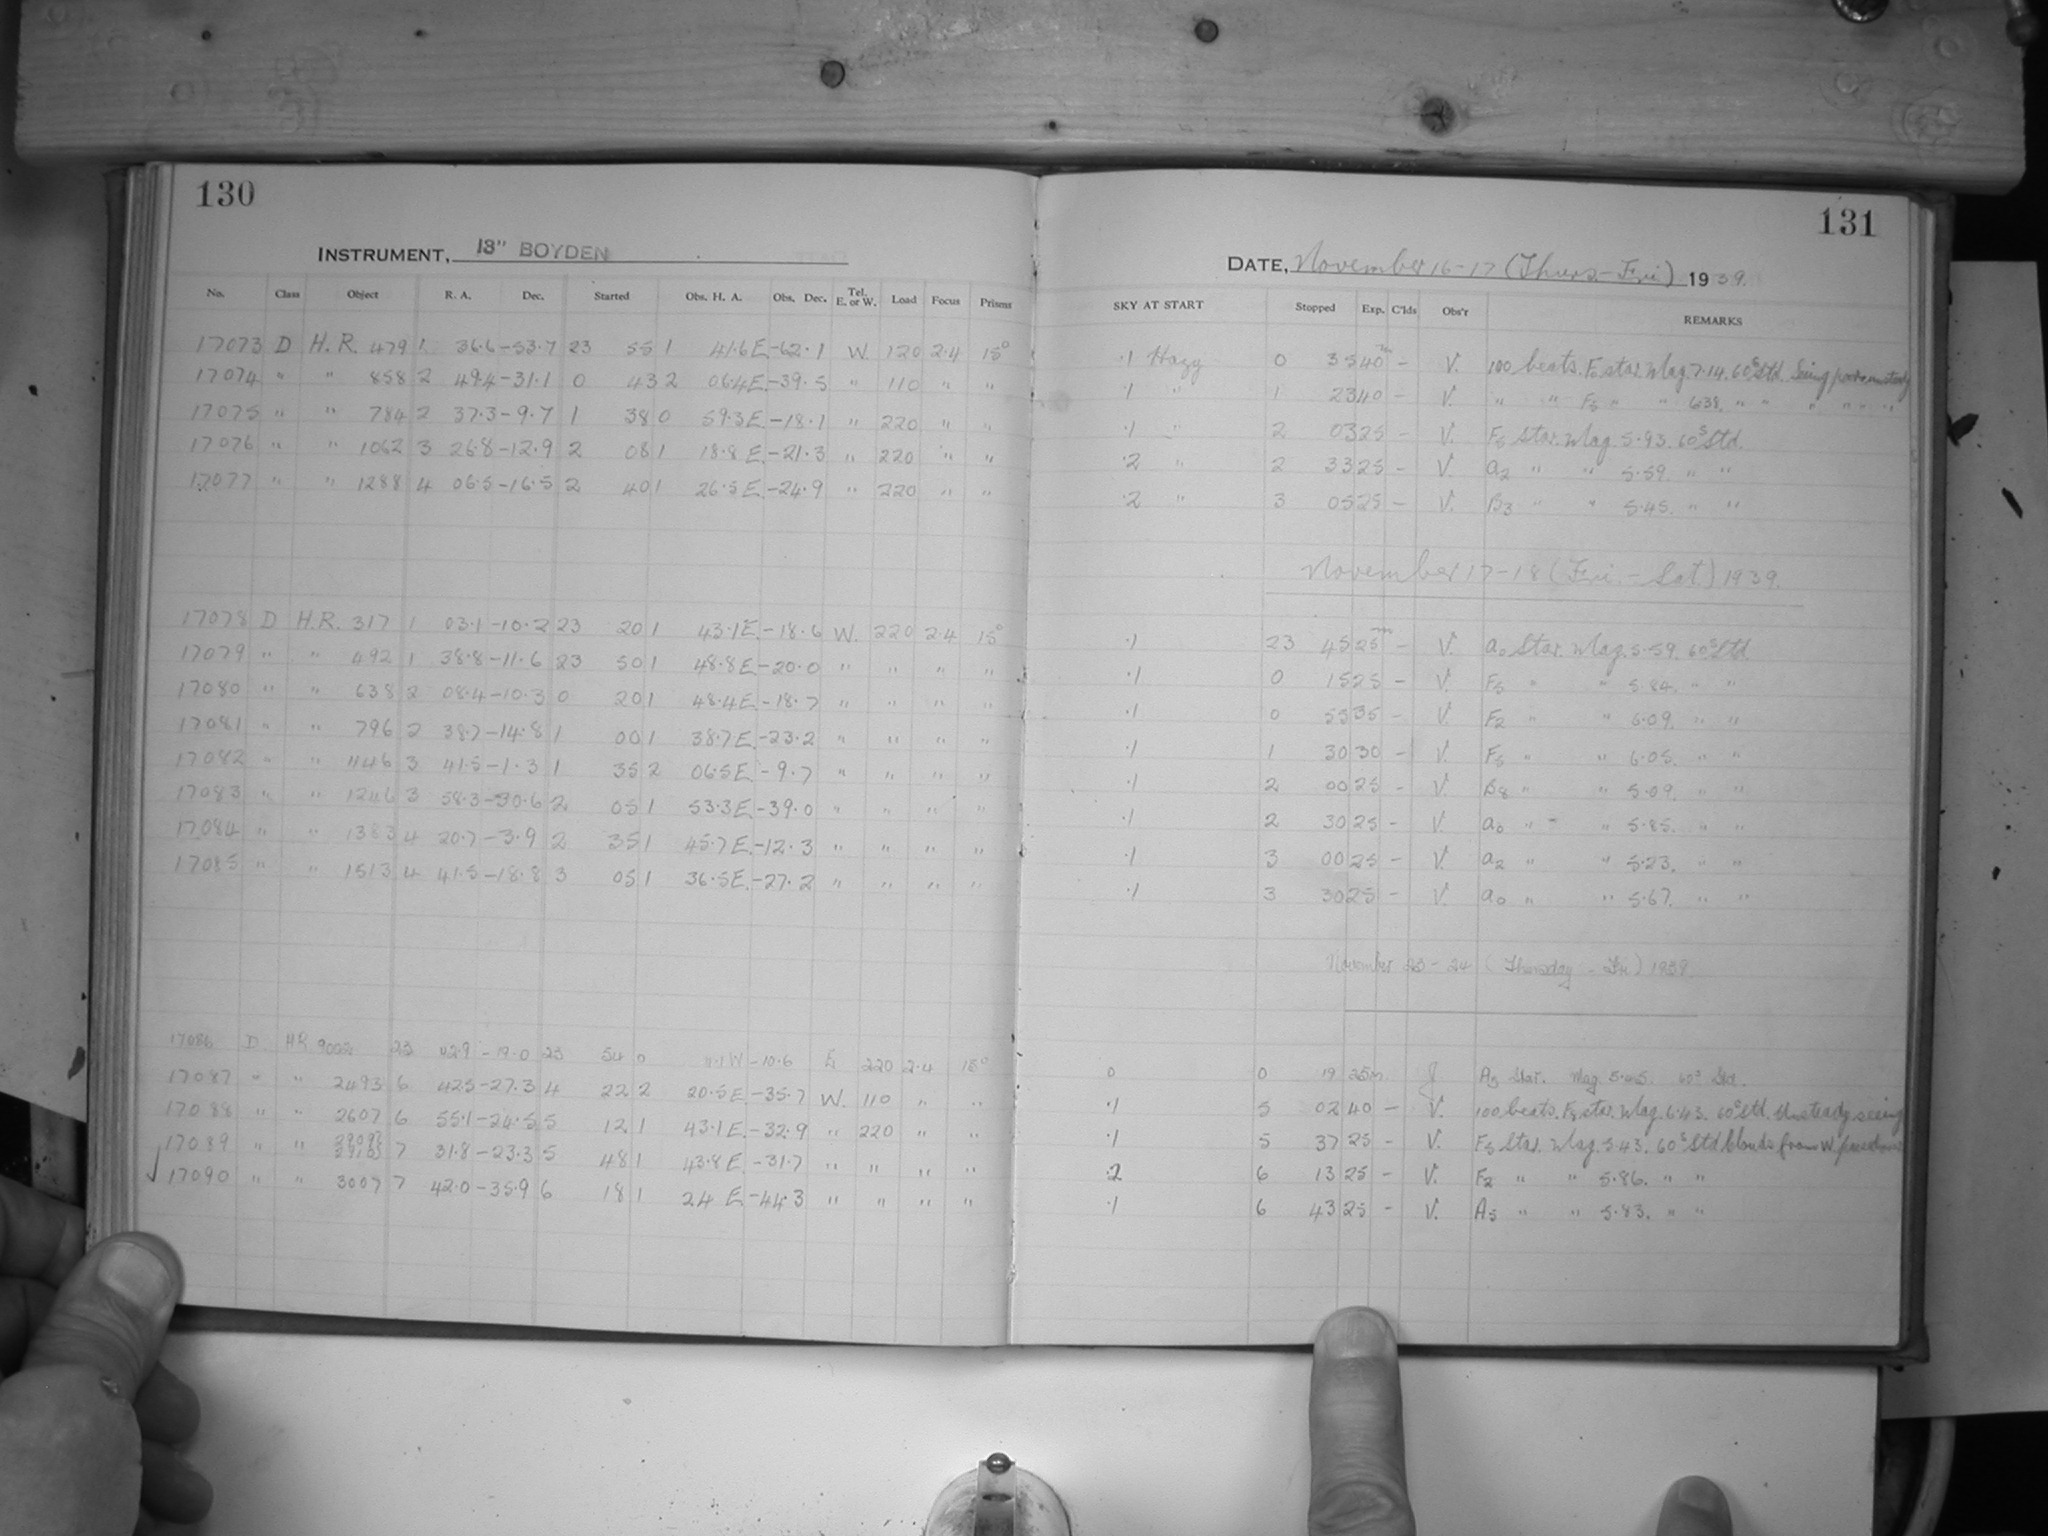 130
INSTRUMENT, 13" BOYDEN
No. Class Object R. A. Dec. Started Obs. H. A. Obs. Dec. Tel. E. or W. Load Focus Prisms
17073 D H.R. 479 1 36.6 -53.7 23 55 1 41.6 E. -62.1 W. 120 2.4 15°
17074 " " 858 2 49.4 -31.1 0 43 2 06.4 E. -39.5 " 110 " "
17075 " " 784 2 37.3 -9.7 1 38 0 59.3 E. -18.1 " 220 " "
17076 " " 1062 3 26.8 -12.9 2 08 1 18.8 E. -21.3 " 220 " "
17077 " " 1288 4 06.5 -16.5 2 40 1 26.5 E. -24.9 " 220 " "
17078 D H.R. 317 1 03.1 -10.2 23 20 1 43.1 E. -18.6 W. 220 2.4 15°
17079 " " 492 1 38.8 -11.6 23 50 1 48.8 E. -20.0 " " " "
17080 " " 638 2 08.4 -10.3 0 20 1 48.4 E. -18.7 " " " "
17081 " " 796 2 38.7 -14.8 1 00 1 38.7 E. -23.2 " " " "
17082 " " 1146 3 41.5 -1.3 1 35 2 06.5 E. -9.7 " " " "
17083 " " 1246 3 58.3 -30.6 2 05 1 53.3 E. -39.0 " " " "
17084 " " 1383 4 20.7 -3.9 2 35 1 45.7 E. -12.3 " " " "
17085 " " 1513 4 41.5 -18.8 3 05 1 36.5 E. -27.2 " " " "
17086 D. HR. 23 02.9 -19.0 23 54 0 11.1 W -10.6 E 220 2.4 15°
17087 " " 2493 6 42.5 -27.3 4 22 2 20.5 E. -35.7 W. 110 " "
17088 " " 2607 6 55.1 -24.5 5 12 1 43.1 E. -32.9 " 220 " "
17089 " " 7 31.8 -23.3 5 48 1 43.8 E. -31.7 " " " "
√ 17090 " " 3007 7 42.0 -35.9 6 18 1 24 E. -44.3 " " " "
131
DATE, November 16-17 (Thurs-Fri) 1939.
SKY AT START Stopped Exp. C'lds Obs'r REMARKS
.1 Hazy 0 35 40m - V. 100 beats. F0 star. Mag. 7.14. 60s Std. Seeing poor unsteady
.1 " 1 23 40 - V. " " F5 " " 6.38. " " " " "
.1 " 2 03 25 - V. F5 Star. Mag. 5.93. 60s Std.
.2 " 2 33 25 - V. A2 " " 5.59. " "
.2 " 3 05 25 - V. B3 " " 5.45. " "
November 17-18 (Fri.-Sat) 1939.
.1 23 45 25m - V. A0 Star. Mag. 5.59. 60s Std
.1 0 15 25 - V. F5 " " 5.84. " "
.1 0 55 35 - V. F2 " " 6.09. " "
.1 1 30 30 - V. F5 " " 6.05. " "
.1 2 00 25 - V. B8 " " 5.09. " "
.1 2 30 25 - V. A0 " " 5.85. " "
.1 3 00 25 - V. A2 " " 5.23. " "
.1 3 30 25 - V. A0 " " 5.67. " "
November 23-24 (Thursday - Fri) 1939.
0 0 19 25m. J A5 Star. Mag. 60s Std.
.1 5 02 40 - V. 100 beats. star. Mag. 6.43. 60s Std. Unsteady seeing
.1 5 37 25 - V. F5 Star. Mag. 5.43. 60s Std Clouds from W.
.2 6 13 25 - V. F2 " " 5.86. " "
.1 6 43 25 - V. A5 " " 5.83. " "